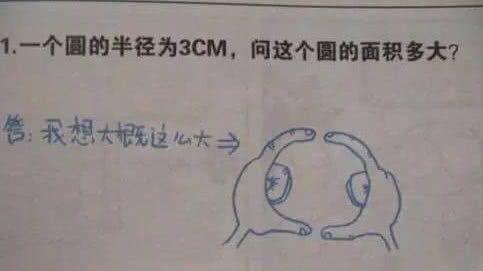 1.一个圆的半径为3CM，问这个圆的面积多大?
答：我想大概这么大⇒